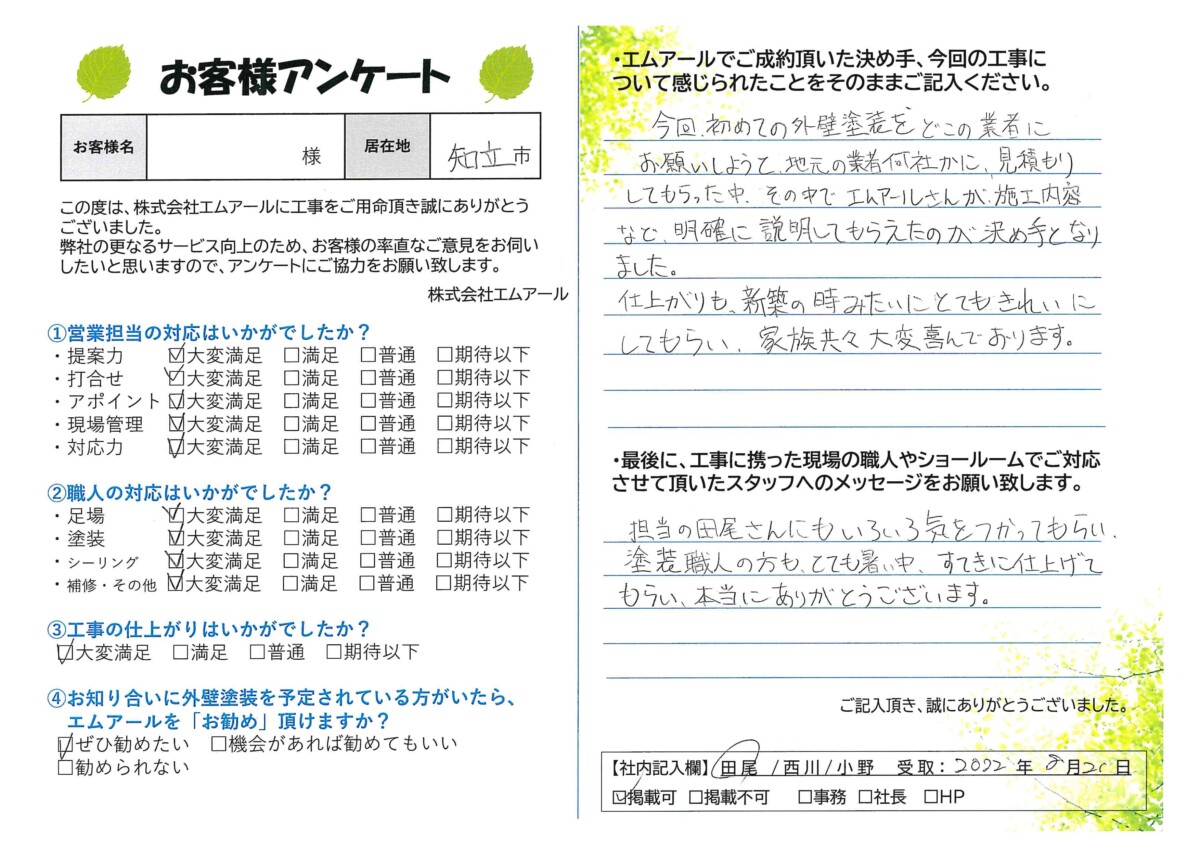 お客様アンケート
お客様名 様 居在地 知立市
この度は、株式会社エムアールに工事をご用命頂き誠にありがとう
ございました。
弊社の更なるサービス向上のため、お客様の率直なご意見をお伺い
したいと思いますので、アンケートにご協力をお願い致します。
株式会社エムアール
①営業担当の対応はいかがでしたか？
・提案力 ☑大変満足 □満足 □普通 □期待以下
・打合せ ☑大変満足 □満足 □普通 □期待以下
・アポイント ☑大変満足 □満足 □普通 □期待以下
・現場管理 ☑大変満足 □満足 □普通 □期待以下
・対応力 ☑大変満足 □満足 □普通 □期待以下
②職人の対応はいかがでしたか？
・足場 ☑大変満足 □満足 □普通 □期待以下
・塗装 ☑大変満足 □満足 □普通 □期待以下
・シーリング ☑大変満足 □満足 □普通 □期待以下
・補修・その他 ☑大変満足 □満足 □普通 □期待以下
③工事の仕上がりはいかがでしたか？
☑大変満足 □満足 □普通 □期待以下
④お知り合いに外壁塗装を予定されている方がいたら、
エムアールを「お勧め」頂けますか？
☑ぜひ勧めたい □機会があれば勧めてもいい
□勧められない
・エムアールでご成約頂いた決め手、今回の工事に
ついて感じられたことをそのままご記入ください。
今回、初めての外壁塗装をどこの業者に
お願いしようと、地元の業者何社かに、見積もり
してもらった中、その中でエムアールさんが、施工内容
など、明確に説明してもらえたのが決め手となり
ました。
仕上がりも、新築の時みたいにとてもきれいに
してもらい、家族共々大変喜んでおります。
・最後に、工事に携った現場の職人やショールームでご対応
させて頂いたスタッフへのメッセージをお願い致します。
担当の田尾さんにもいろいろ気をつかってもらい、
塗装職人の方も、とても暑い中、すてきに仕上げて
もらい、本当にありがとうございます。
ご記入頂き、誠にありがとうございました。
【社内記入欄】田尾/西川/小野 受取：2022年 月 日
☑掲載可 □掲載不可 □事務 □社長 □HP